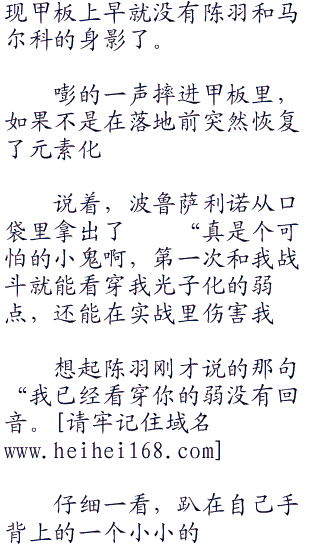 现甲板上早就没有陈羽和马
尔科的身影了。
嘭的一声摔进甲板里，
如果不是在落地前突然恢复
了元素化
说着，波鲁萨利诺从口
袋里拿出了　　“真是个可
怕的小鬼啊，第一次和我战
斗就能看穿我光子化的弱
点，还能在实战里伤害我
想起陈羽刚才说的那句
“我已经看穿你的弱没有回
音。[请牢记住域名
www.heihei168.com]
仔细一看，趴在自己手
背上的一个小小的